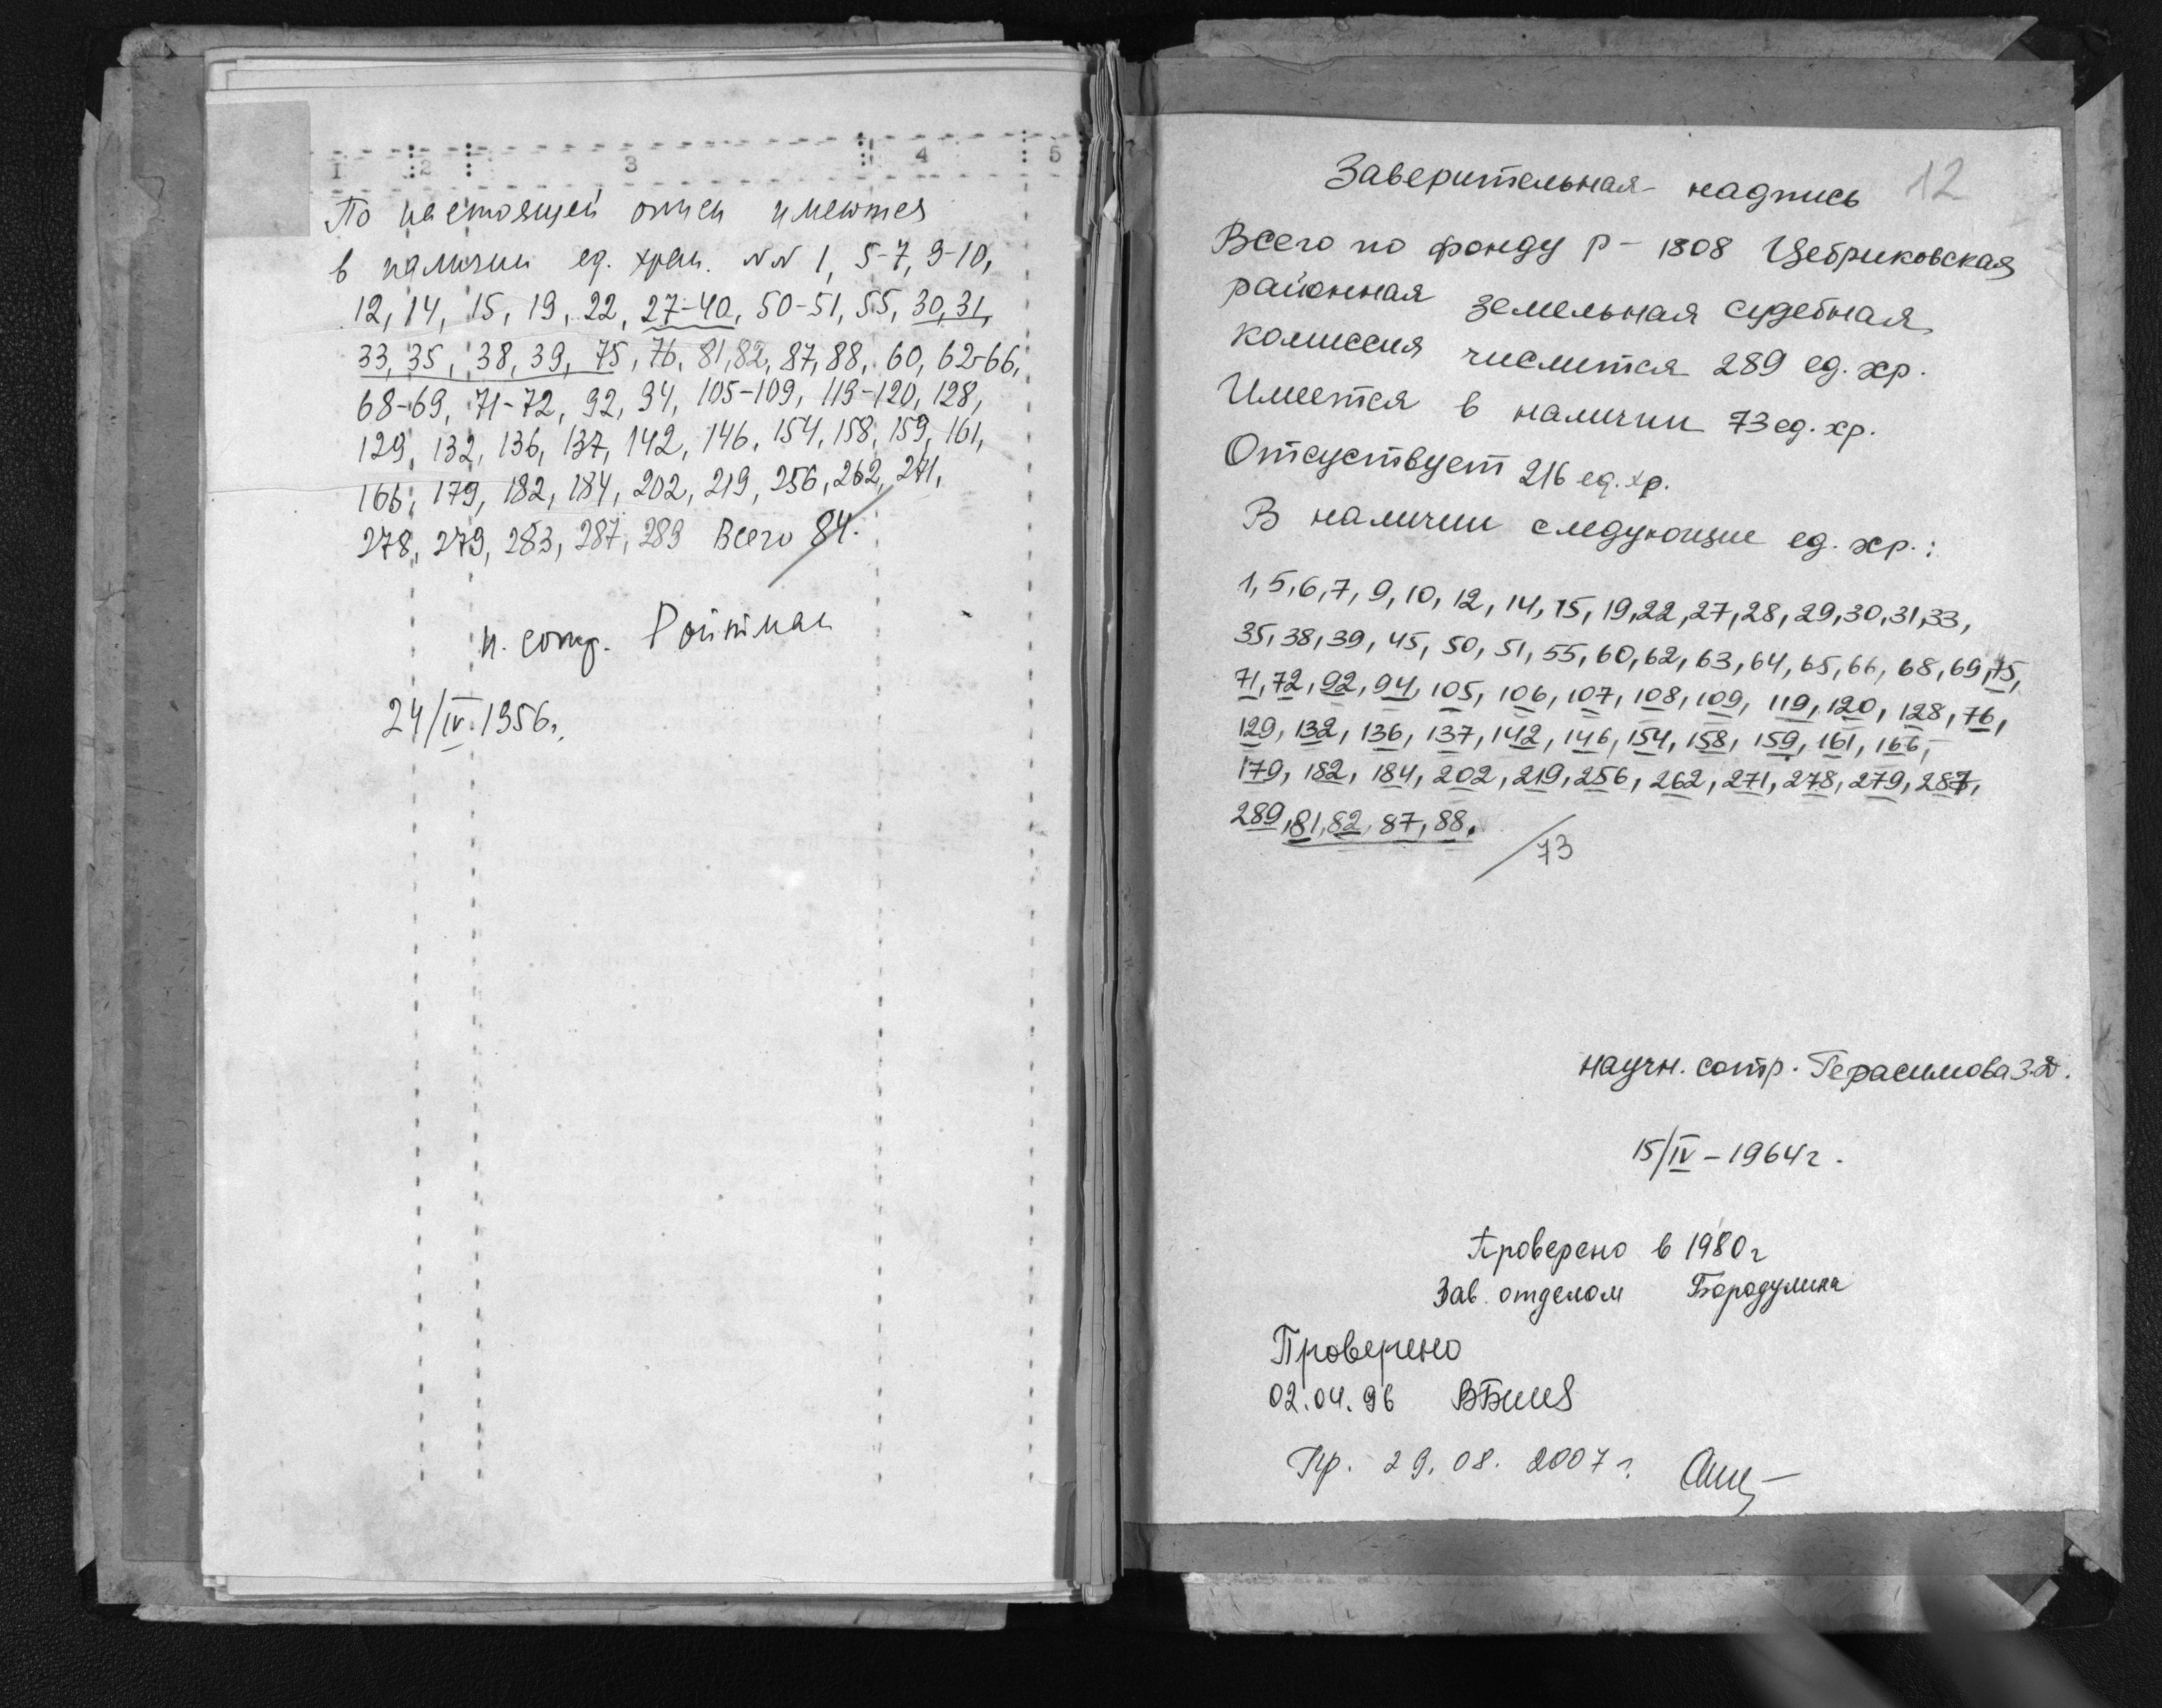 1 2 3 4 5
По настоящей описи имеются
в наличии ед. хран. NN 1, 5-7, 9-10,
12, 14, 15, 19, 22, 27-40, 50-51, 55, 30, 31,
33, 35, 38, 39, 75, 76, 81, 82, 87, 88, 60, 62-66,
68-69, 71-72, 92, 94, 105-109, 119-120, 128,
129, 132, 136, 137, 142, 146, 154, 158, 159, 161,
166, 179, 182, 184, 202, 219, 256, 262, 271,
278, 279, 283, 287, 289 Всего 84.
н. сотр. Ройтман
24/IV.1956г.
12
Заверительная надпись
Всего по фонду р-1808 Цебриковская
районная земельная судебная
комиссия числится 289 ед. хр.
Имеется в наличии 73 ед. хр.
Отсуствует 216 ед. хр.
В наличии следующие ед. хр.:
1, 5, 6, 7, 9, 10, 12, 14, 15, 19, 22, 27, 28, 29, 30, 31, 33,
35, 38, 39, 45, 50, 51, 55, 60, 62, 63, 64, 65, 66, 68, 69, 75,
71, 72, 92, 94, 105, 106, 107, 108, 109, 119, 120, 128, 76,
129, 132, 136, 137, 142, 146, 154, 158, 159, 161, 166,
179, 182, 184, 202, 219, 256, 262, 271, 278, 279, 287,
289, 81, 82, 87, 88.
73
научн. сотр. Герасимова З.Д.
15/IV-1964г.
Проверено в 1980г
Зав. отделом Бородулина
Проверено
02.04.96
Пр. 29.08.2007 г.